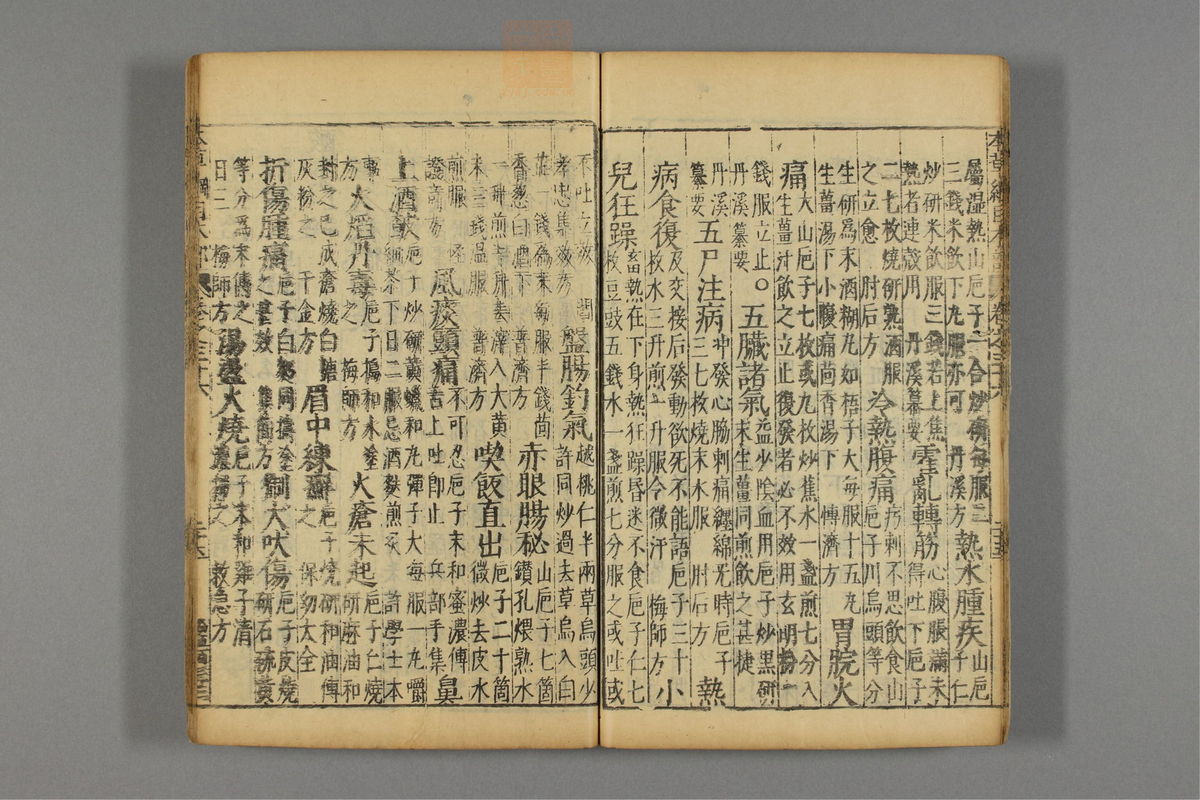 屬濕熱山卮子一合炒研每服二
三錢米飲下丸服亦可　丹溪方
熱水腫疾
山卮
子仁
炒研米飲服三錢若上焦
熱者連殼用　丹溪纂要
霍亂轉筋
心腹脹滿未
得吐下卮子
二七枚燒研熟酒服
之立愈　肘后方
冷熱腹痛
㽲刺不思飲食山
卮子川烏頭等分
生研爲末酒糊丸如梧子大每服十五丸
生薑湯下小腹痛茴香湯下　博濟方
胃脘火
痛
大山卮子七枚或九枚炒焦水一盞煎七分入
生薑汁飲之立止復發者必不效用玄明粉一
錢服立止。
丹溪纂要
五臟諸氣
益少陰血用卮子炒黑研
末生薑同煎飲之甚捷
丹溪
纂要
五尸注病
冲發心脇刺痛纏綿无時卮子
三七枚燒末水服　肘后方
熱
病食復
及交接后發動欲死不能語卮子三十
枚水三升煎一升服令微汗　梅師方
小
兒狂躁
畜熱在下身熱狂躁昏迷不食卮子仁七
枚豆豉五錢水一盞煎七分服之或吐或
不吐立效　閻
孝忠集效方
盤腸釣氣
越桃仁半兩草烏頭少
許同炒過去草烏入白
芷一錢爲末每服半錢茴
香葱白酒下　普濟方
赤眼腸秘
山卮子七箇
鑽孔煨熟水
一升煎半升去滓入大黃
末三錢溫服　普濟方
喫飯直出
卮子二十箇
微炒去皮水
煎服　怪
證奇方
風痰頭痛
不可忍卮子末和蜜濃傅
舌上吐即止　兵部手集
鼻
上酒皶
卮子炒研黃蠟和丸彈子大每服一丸嚼
細茶下日二服忌酒麩煎炙　許學士本
事
方
火丹毒
卮子搗和水塗
之　梅師方
火瘡未起
卮子仁燒
研麻油和
封之已成瘡燒白糖
灰粉之　千金方
眉中練癬
卮子燒研和油傅
之　保幼大全
折傷腫痛
卮子白麪同搗塗
之甚效　集簡方
猘犬吠傷
卮子皮燒
研石硫黃
等分爲末傅之
日三　梅師方
湯盪火燒
卮子末和雞子清
濃掃之　救急方
本草綱目木部
卷之三十六